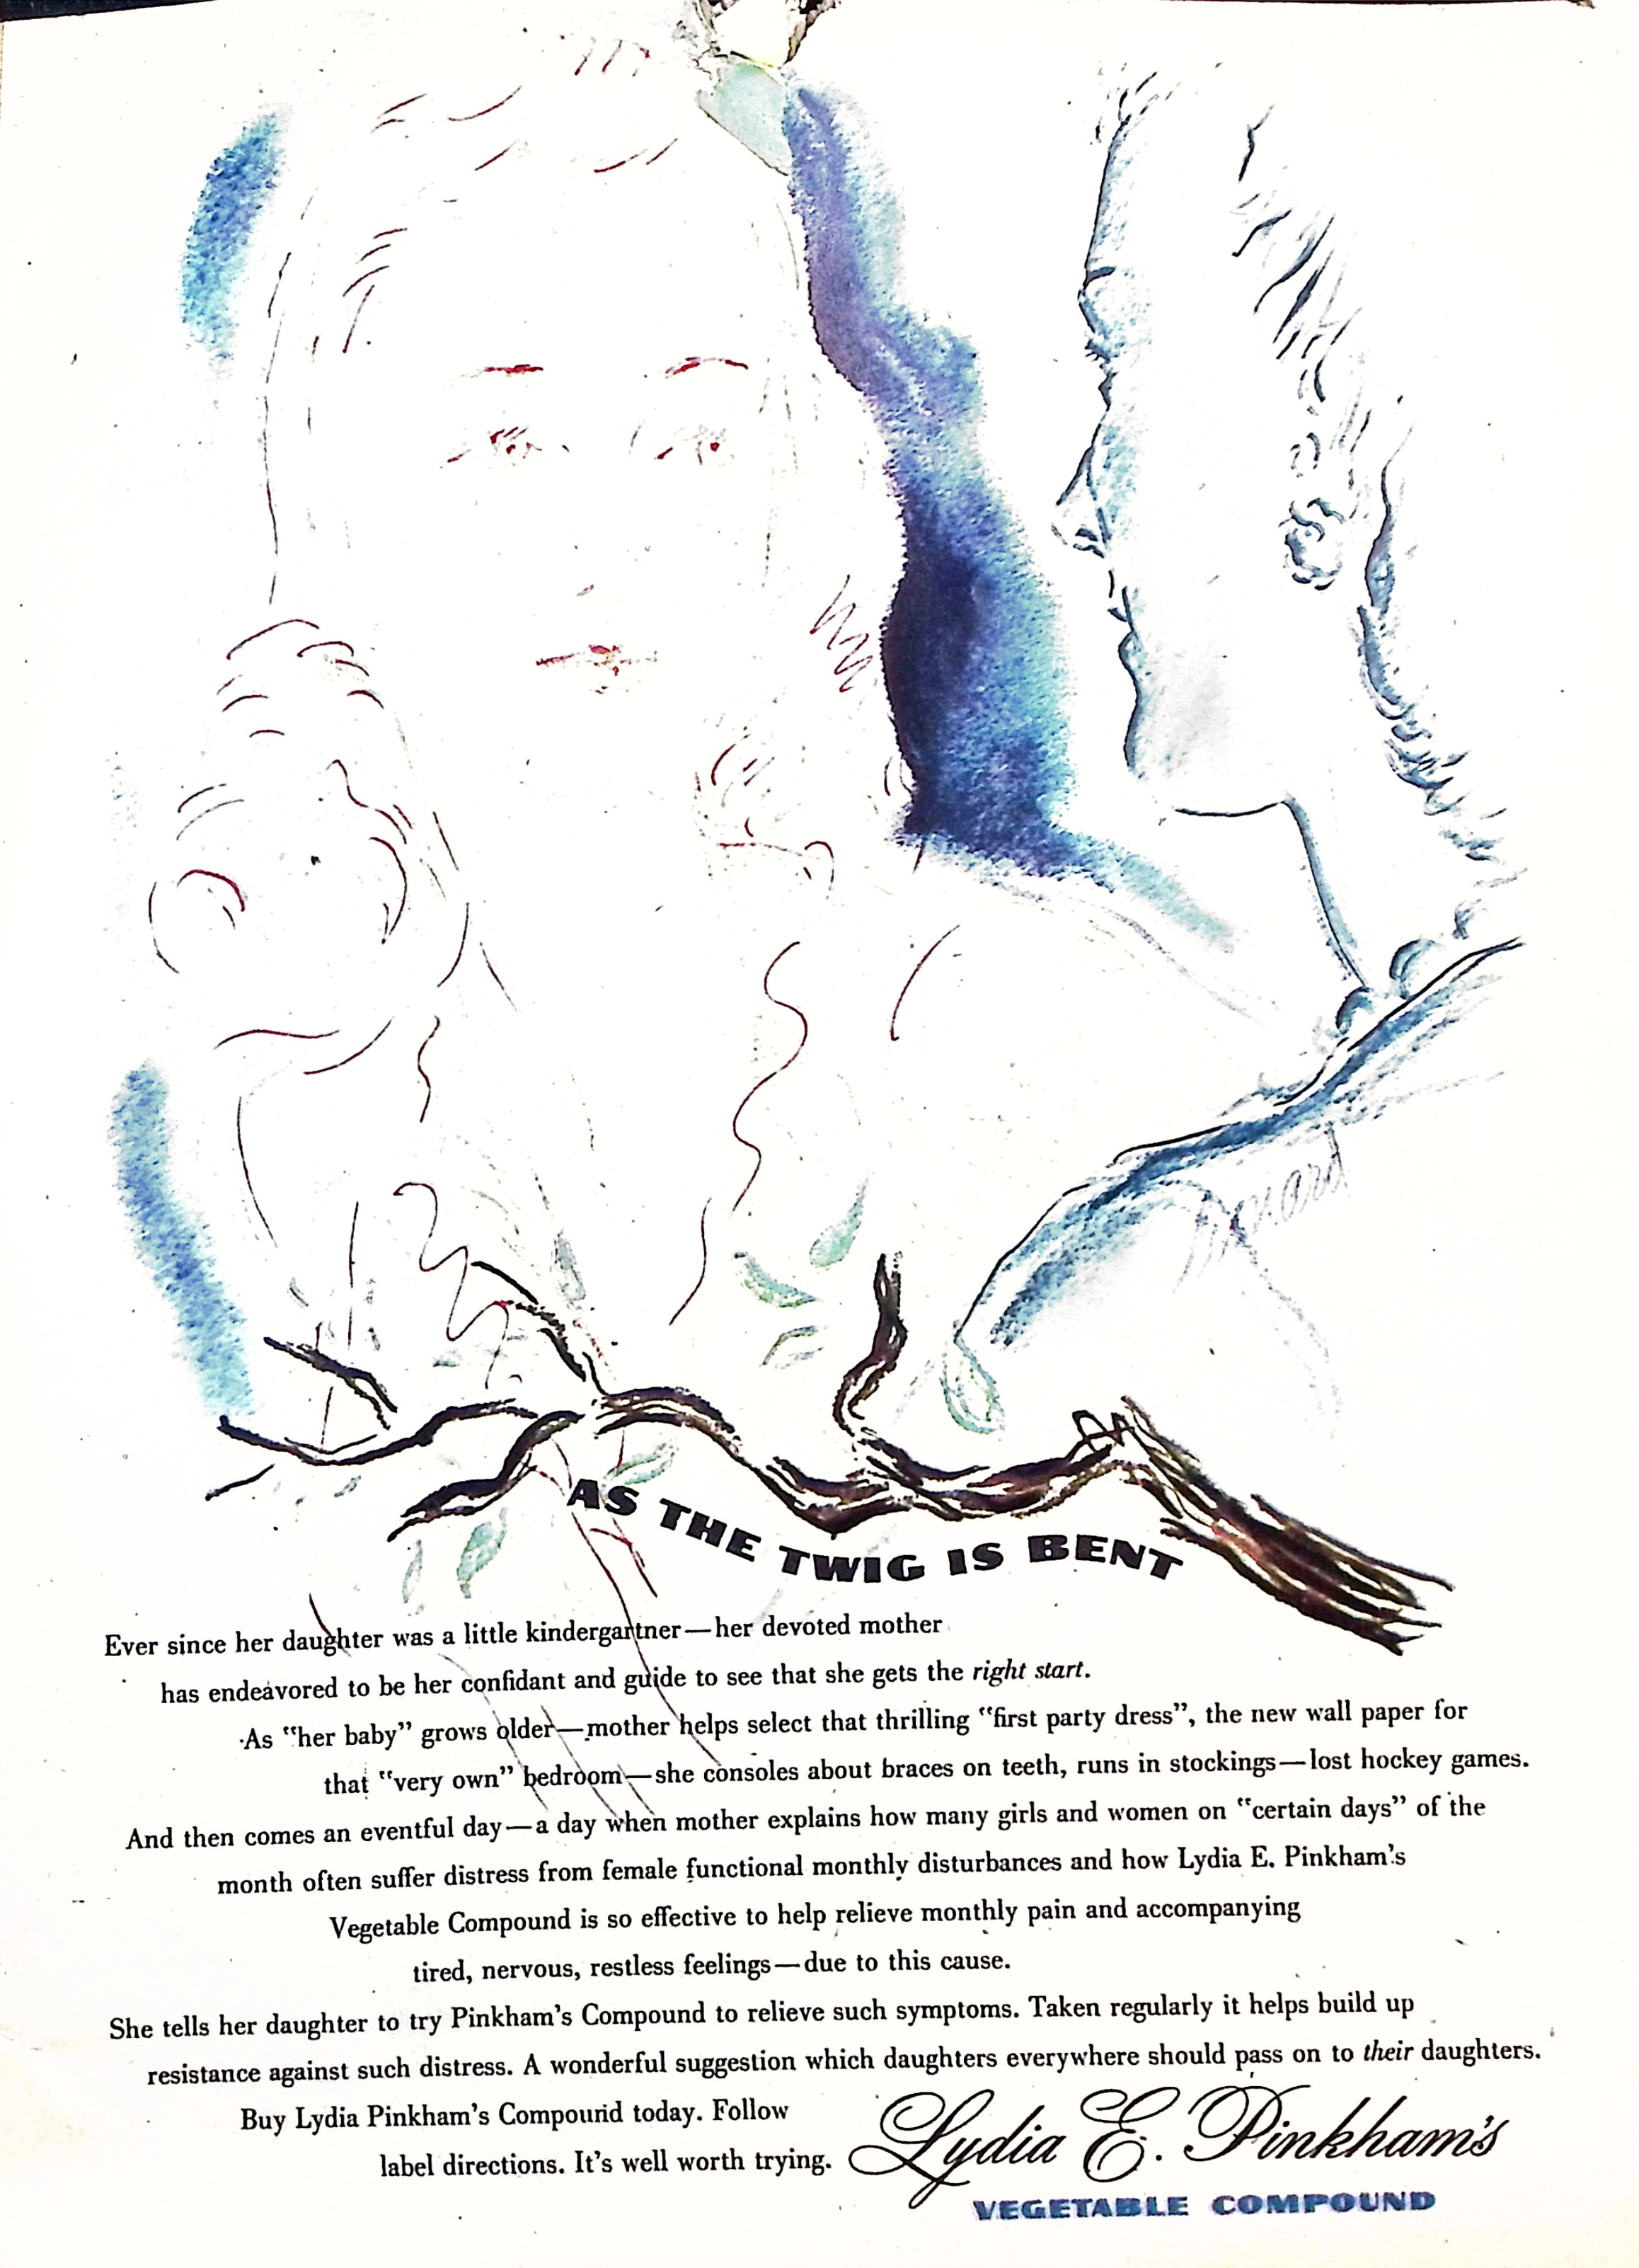 AS THE TWIG IS BENT
Ever since her daughter was a little kindergartner—her devoted mother
has endeavored to be her confidant and guide to see that she gets the right start.
As "her baby" grows older—mother helps select that thrilling "first party dress", the new wall paper for
that "very own" bedroom—she consoles about braces on teeth, runs in stockings—lost hockey games.
And then comes an eventful day—a day when mother explains how many girls and women on "certain days" of the
month often suffer distress from female functional monthly disturbances and how Lydia E. Pinkham's
Vegetable Compound is so effective to help relieve monthly pain and accompanying
tired, nervous, restless feelings—due to this cause.
She tells her daughter to try Pinkham's Compound to relieve such symptoms. Taken regularly it helps build up
resistance against such distress. A wonderful suggestion which daughters everywhere should pass on to their daughters.
Buy Lydia Pinkham's Compound today. Follow
label directions. It's well worth trying.
Lydia E. Pinkham's
VEGETABLE COMPOUND